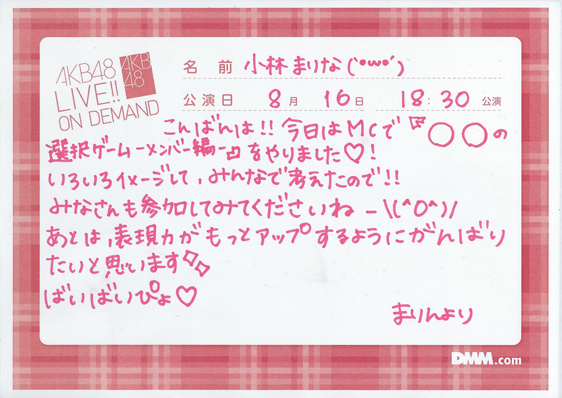 AKB48
LIVE!!
ON DEMAND
AKB
48
名 前 小林まりな(´•ω•`)
公演日 8月 16日 18:30 公演
こんばんは!!今日はMCで『○○の
選択ゲームーメンバー編ー』をやりました♡!
いろいろイメージして、みんなで考えたので!!
みなさんも参加してみてくださいねー\(^O^)/
あとは、表現力がもっとアップするようにがんばり
たいと思います
ばいばいぴょ♡
まりんより
DMM.com